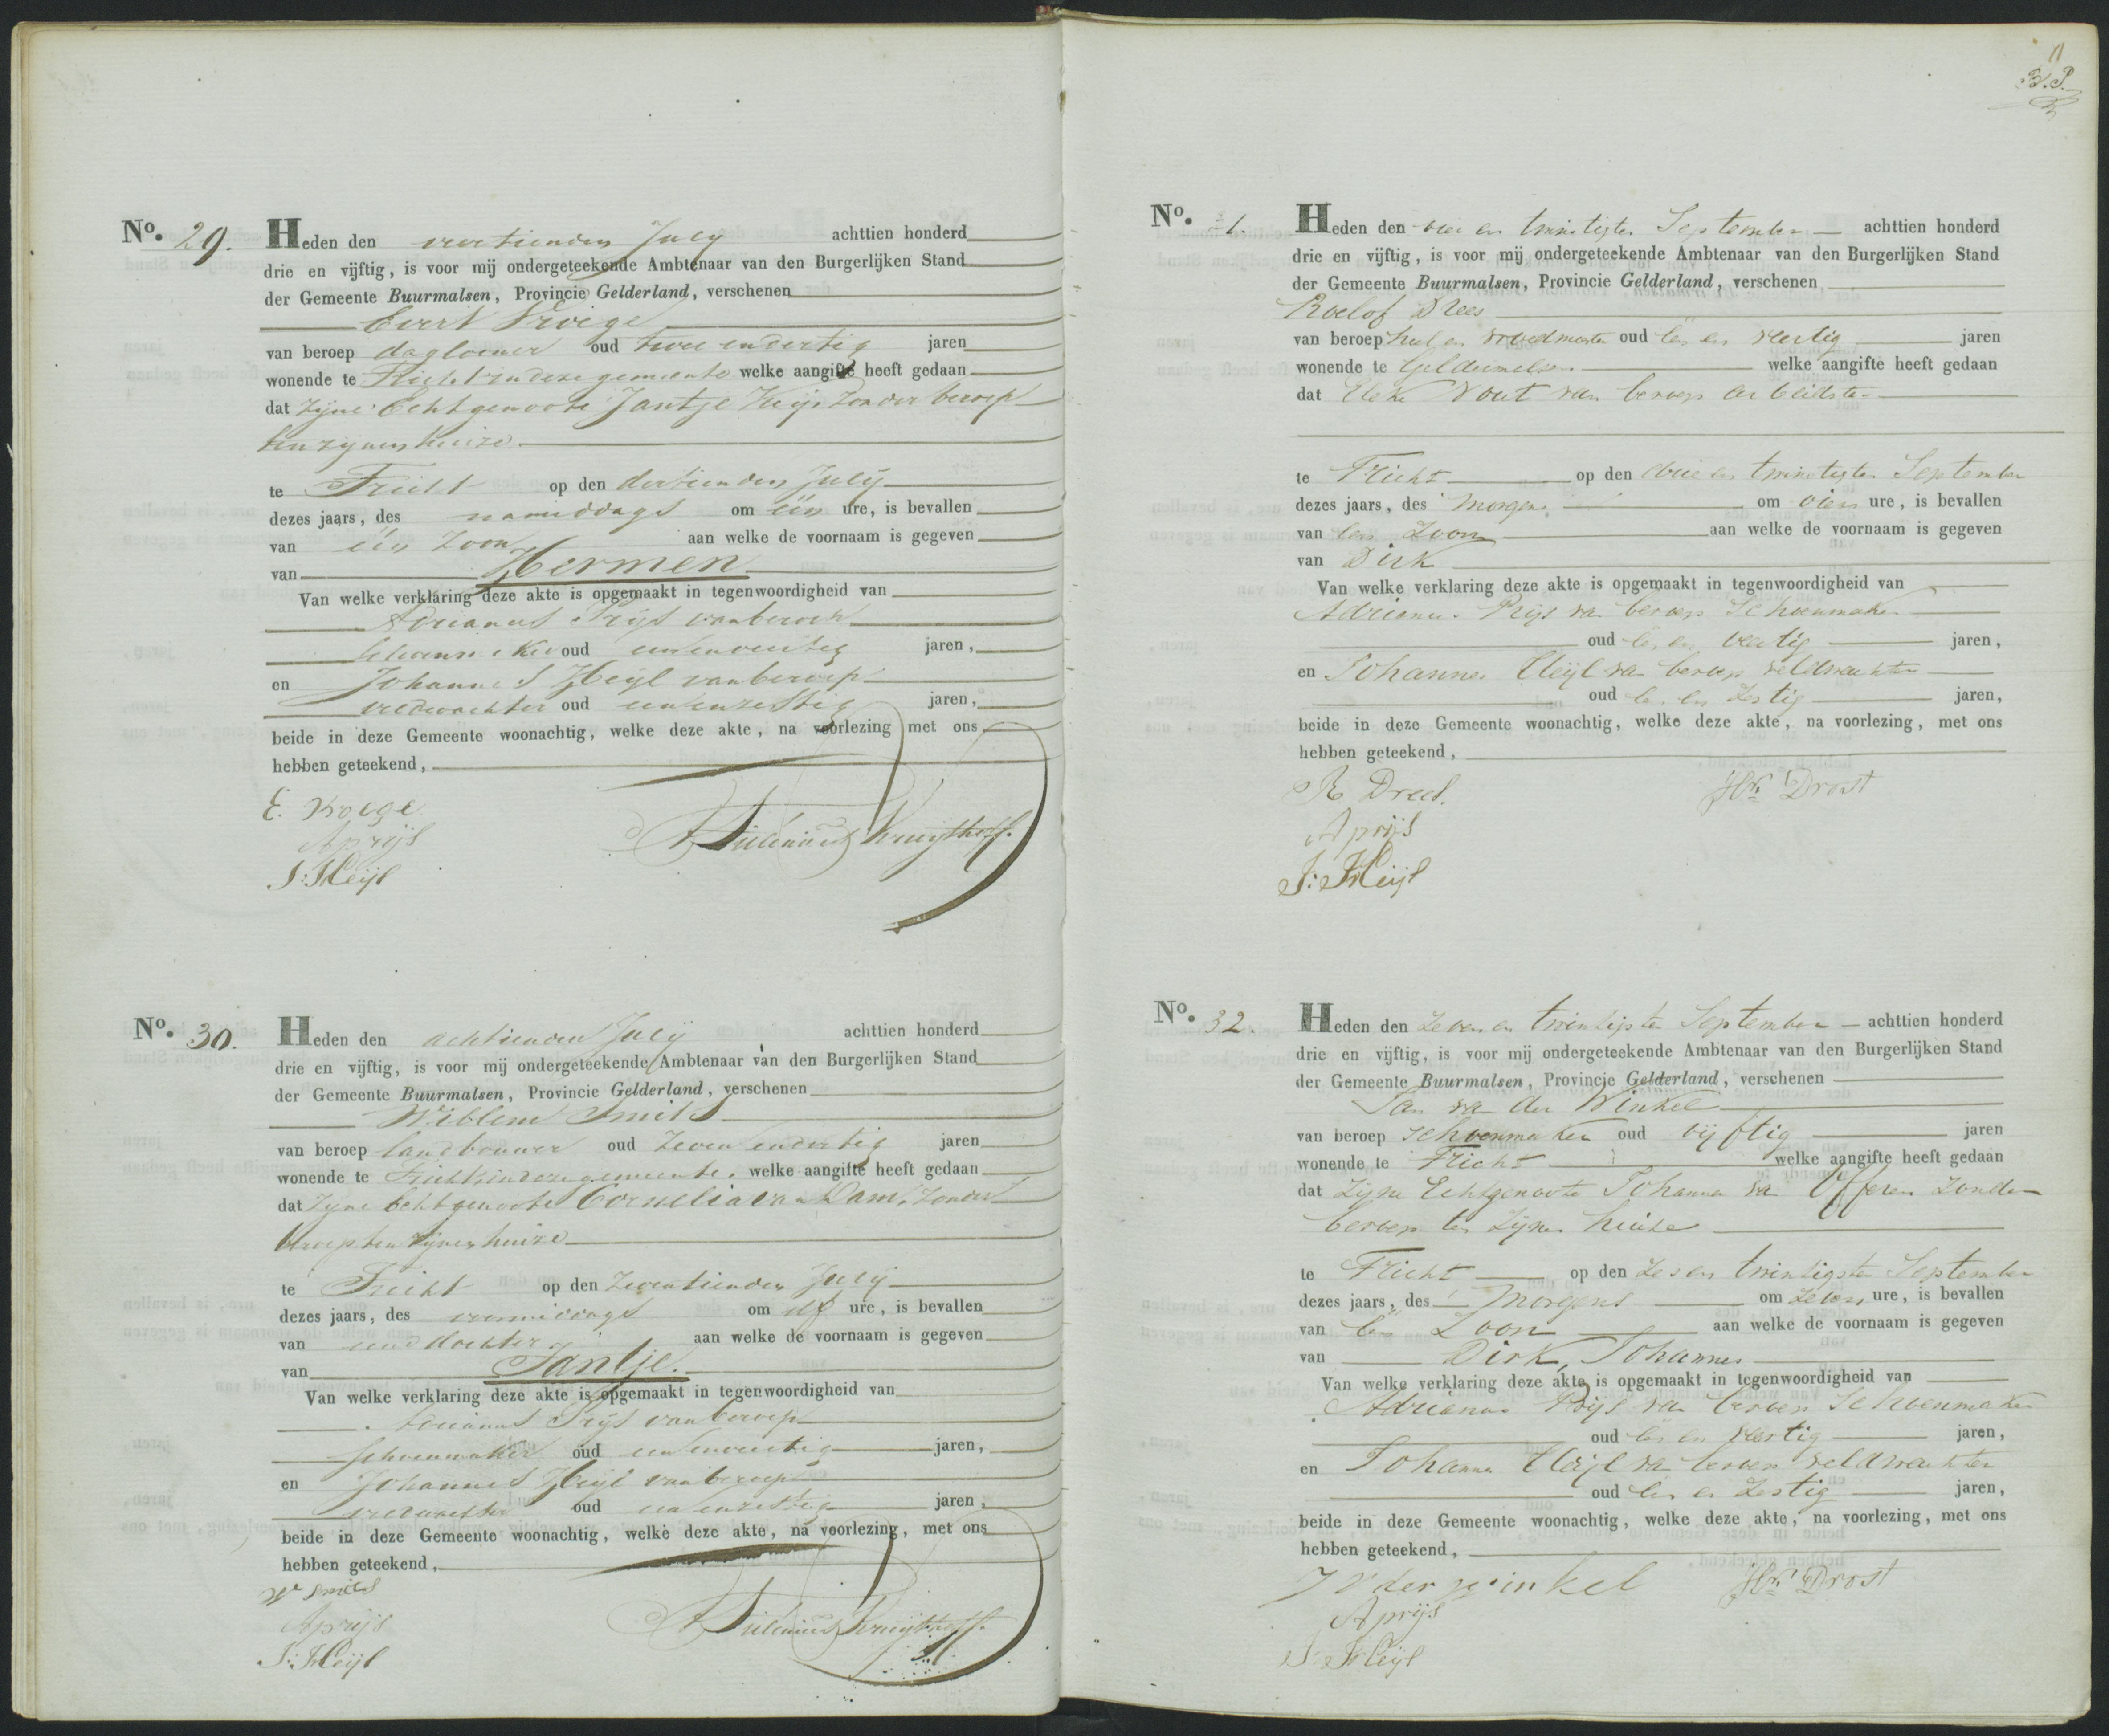 No. 29. Heden den veertienden July achttien honderd
drie en vijftig, is voor mij ondergeteekende Ambtenaar van den Burgerlijken Stand
der Gemeente Buurmalsen, Provincie Gelderland, verschenen
Evert Kroege
van beroep daglooner oud twee en dertig jaren
wonende te Tricht in deze gemeente welke aangifte heeft gedaan
dat zijne Echtgenoote Jantje zonder beroep
ten zijnen huize
te Tricht op den dertienden July
dezes jaars, des namiddags om één ure, is bevallen
van één Zoon aan welke de voornaam is gegeven
van Hermen
Van welke verklaring deze akte is opgemaakt in tegenwoordigheid van
Adrianus Prijs van beroep
schoenmaker oud een en veertig jaren,
en Johannes Heijl van beroep
veldwachter oud een en zestig jaren,
beide in deze Gemeente woonachtig, welke deze akte, na voorlezing met ons
hebben geteekend,
E. Kroege
A prijs
J: Heijl
No. 30. Heden den achttienden July achttien honderd
drie en vijftig, is voor mij ondergeteekende Ambtenaar van den Burgerlijken Stand
der Gemeente Buurmalsen, Provincie Gelderland, verschenen
Willem Smits
van beroep landbouwer oud zeven en dertig jaren
wonende te Tricht in deze gemeente, welke aangifte heeft gedaan
dat zijne Echtgenoote Cornelia van Dam, zonder
beroep ten zijnen huize
te Tricht op den zeventienden July
dezes jaars, des voormiddags om elf ure, is bevallen
van eene dochter aan welke de voornaam is gegeven
van Jantje.
Van welke verklaring deze akte is opgemaakt in tegenwoordigheid van
Adrianus Prijs van beroep
schoenmaker oud een en veertig jaren,
en Johannes Heijl van beroep
veldwachter oud een en zestig jaren,
beide in deze Gemeente woonachtig, welke deze akte, na voorlezing, met ons
hebben geteekend,
Wm Smits
A prijs
J: Heijl
No. 31. Heden den vier en twintigsten September achttien honderd
drie en vijftig, is voor mij ondergeteekende Ambtenaar van den Burgerlijken Stand
der Gemeente Buurmalsen, Provincie Gelderland, verschenen
Roelof Drees
van beroep heel en vroedmeester oud een en veertig jaren
wonende te Geldermalsen welke aangifte heeft gedaan
dat Eleke Nout van beroep arbeidster
te Tricht op den drie en twintigsten September
dezes jaars, des morgens om vier ure, is bevallen
van een Zoon aan welke de voornaam is gegeven
van Dirk
Van welke verklaring deze akte is opgemaakt in tegenwoordigheid van
Adrianus Prijs van beroep Schoenmaker
oud een en veertig jaren,
en Johannes Heijl van beroep veldwachter
oud een en zestig jaren,
beide in deze Gemeente woonachtig, welke deze akte, na voorlezing, met ons
hebben geteekend,
R Drees. Drost
A prijs
J: Heijl
No. 32. Heden den zeven en twintigsten September achttien honderd
drie en vijftig, is voor mij ondergeteekende Ambtenaar van den Burgerlijken Stand
der Gemeente Buurmalsen, Provincie Gelderland, verschenen
Jan van der Winkel
van beroep schoenmaker oud vijftig jaren
wonende te Tricht welke aangifte heeft gedaan
dat zijne Echtgenoote Johanna van Efferen zonder
beroep ten zijnen huize
te Tricht op den zes en twintigsten September
dezes jaars, des morgens om zeven ure, is bevallen
van een Zoon aan welke de voornaam is gegeven
van Dirk, Johannes
Van welke verklaring deze akte is opgemaakt in tegenwoordigheid van
Adrianus Prijs van beroep Schoenmaker
oud een en veertig jaren,
en Johannes Heijl van beroep veldwachter
oud een en zestig jaren,
beide in deze Gemeente woonachtig, welke deze akte, na voorlezing, met ons
hebben geteekend,
J V der winkel Drost
A prijs
J: Heijl